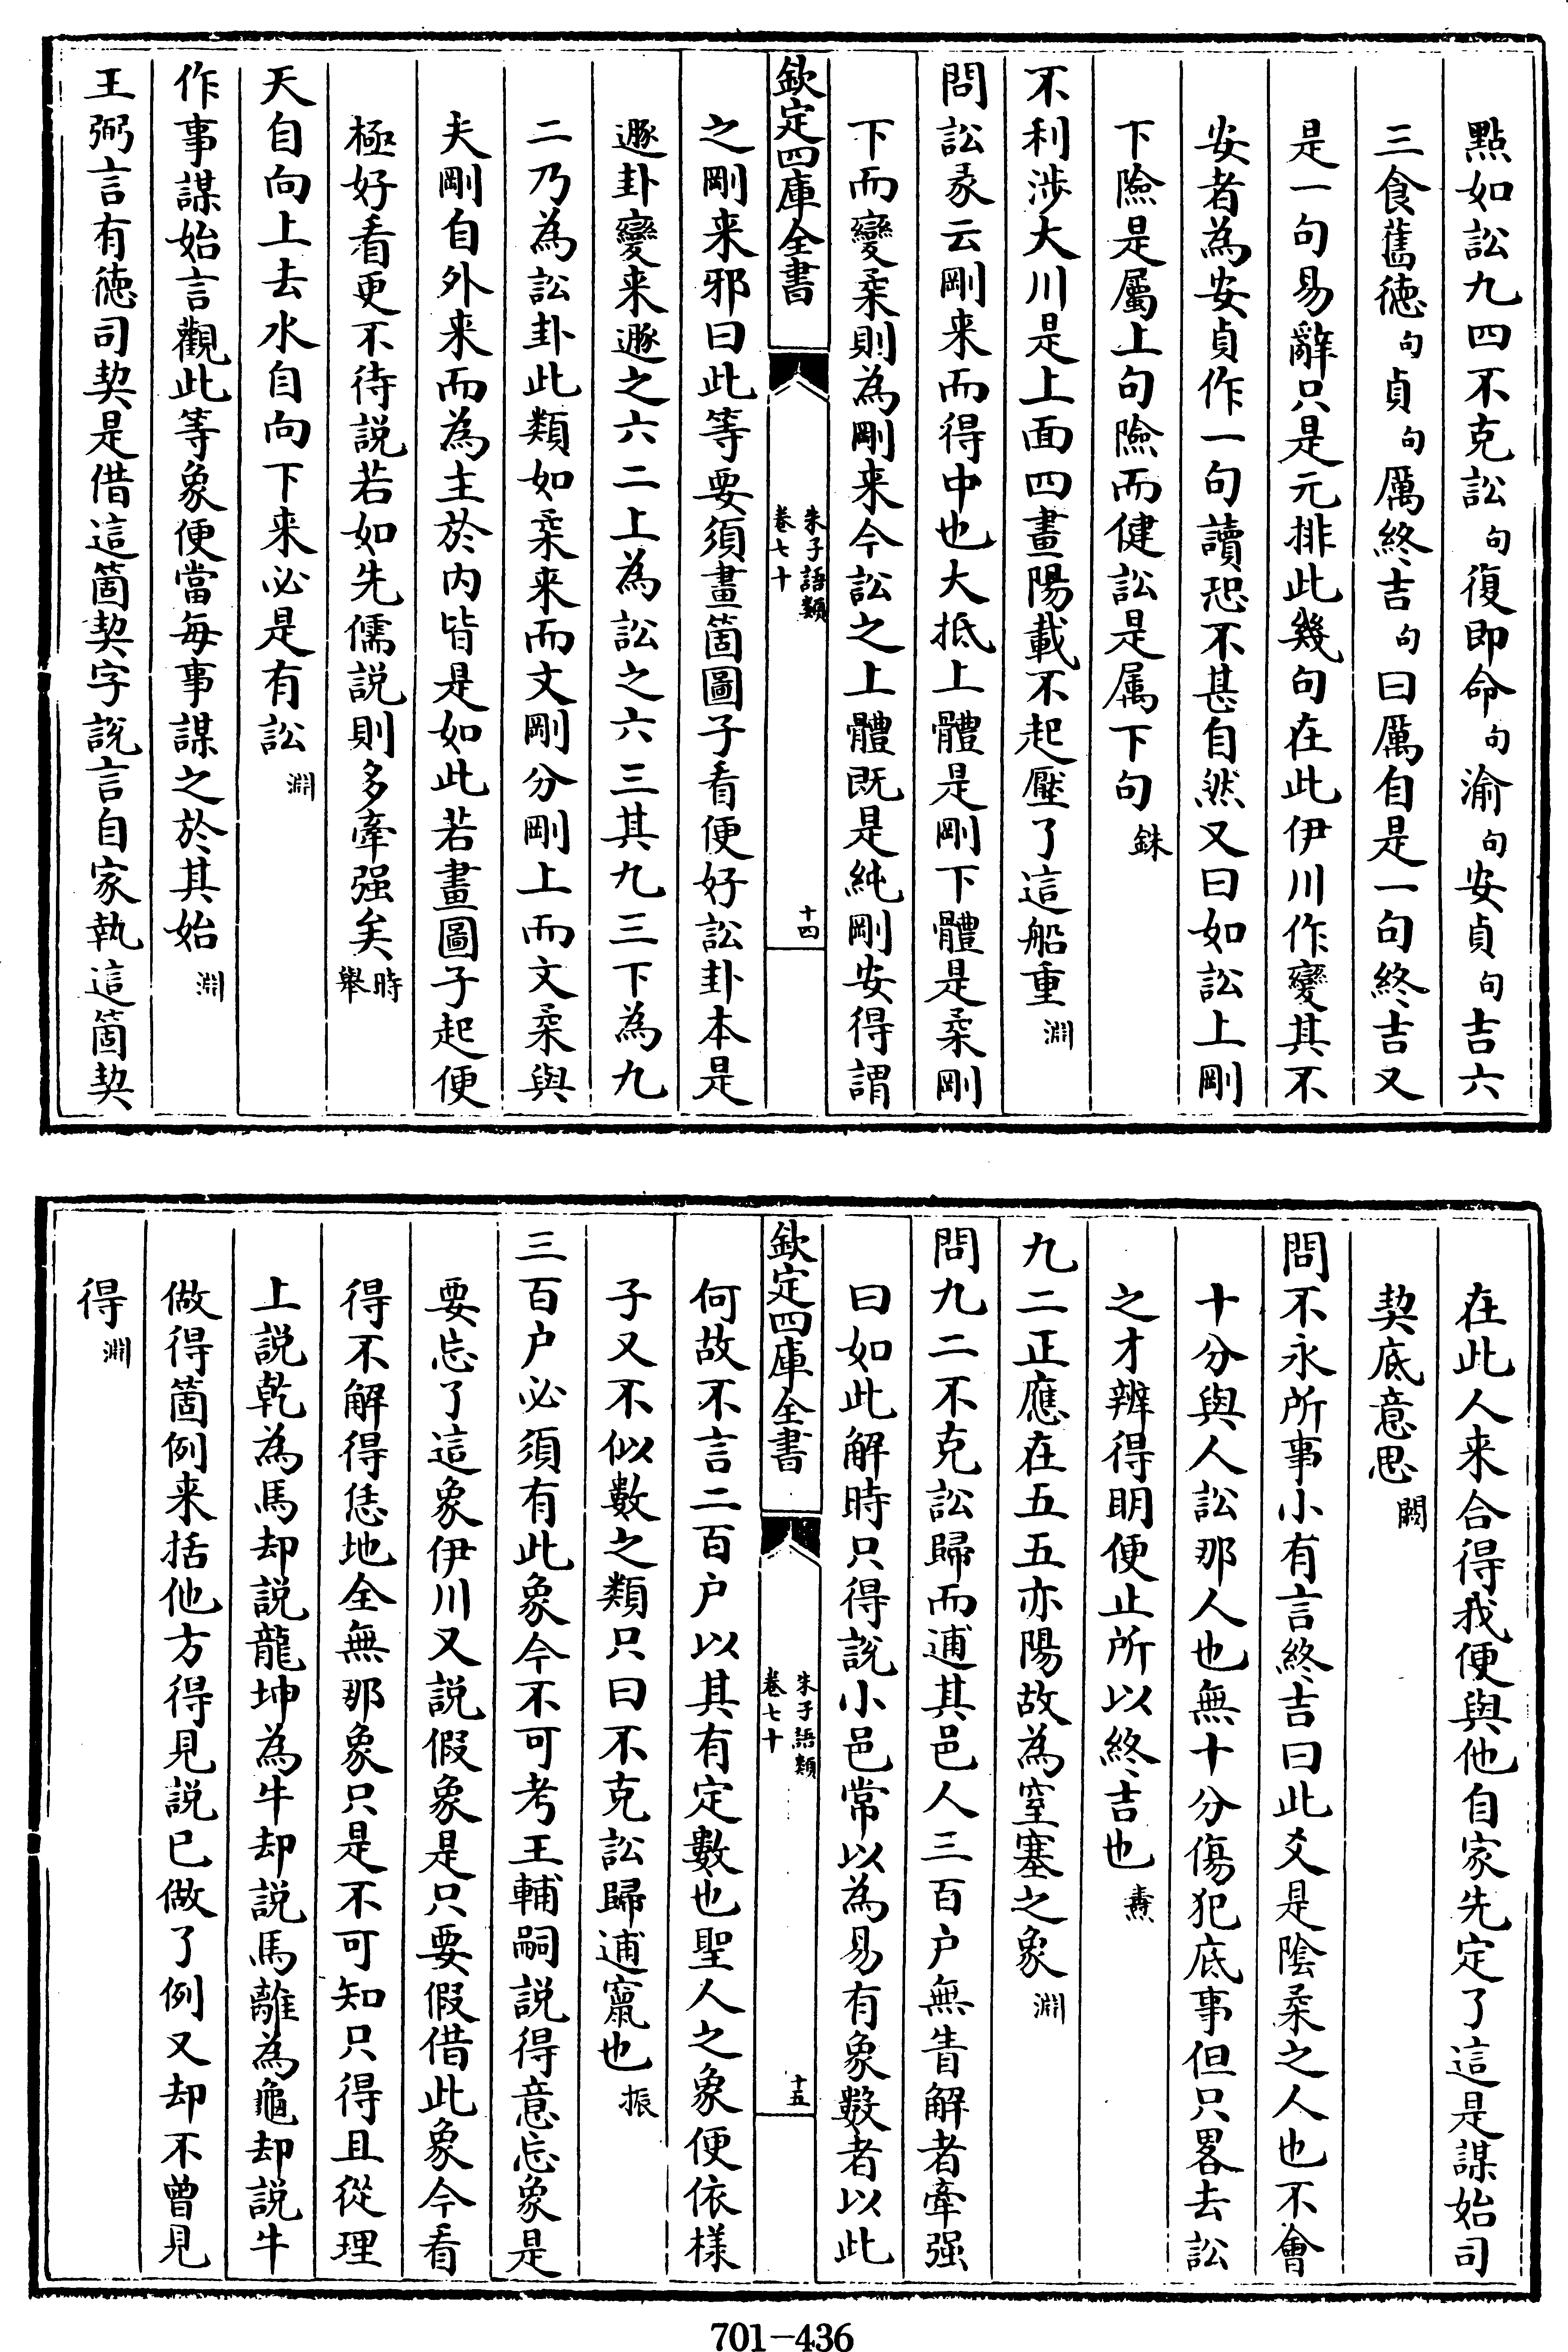 點如訟九四不克訟句復即命句渝句安貞句吉六
三食舊徳句貞句厲終吉句曰厲自是一句終吉又
是一句易辭只是元排此幾句在此伊川作變其不
安者為安貞作一句讀恐不甚自然又曰如訟上剛
下險是屬上句險而健訟是属下句銖
不利涉大川是上面四畫陽載不起壓了這船重淵
問訟彖云剛来而得中也大抵上體是剛下體是柔剛
下而變柔則為剛来今訟之上體既是純剛安得謂
欽定四庫全書
朱子語類
卷七十
十四
之剛来邪曰此等要須畫箇圖子看便好訟卦本是
遯卦變来遯之六二上為訟之六三其九三下為九
二乃為訟卦此類如柔来而文剛分剛上而文柔與
夫剛自外来而為主於内皆是如此若畫圖子起便
極好看更不待説若如先儒説則多牽强矣時舉
天自向上去水自向下来必是有訟淵
作事謀始言觀此等象便當每事謀之於其始淵
王弼言有徳司契是借這箇契字説言自家執這箇契
在此人来合得我便與他自家先定了這是謀始司
契底意思闕
問不永所事小有言終吉曰此爻是隂柔之人也不會
十分與人訟那人也無十分傷犯底事但只畧去訟
之才辨得明便止所以終吉也燾
九二正應在五五亦陽故為窒塞之象淵
問九二不克訟歸而逋其邑人三百户無眚解者牽强
曰如此解時只得説小邑常以為易有象數者以此
欽定四庫全書
朱子語類
卷七十
十五
何故不言二百户以其有定數也聖人之象便依様
子又不似數之類只曰不克訟歸逋竄也振
三百户必須有此象今不可考王輔嗣説得意忘象是
要忘了這象伊川又説假象是只要假借此象今看
得不解得恁地全無那象只是不可知只得且從理
上説乾為馬却説龍坤為牛却説馬離為龜却説牛
做得箇例来括他方得見説已做了例又却不曾見
得淵
701-436